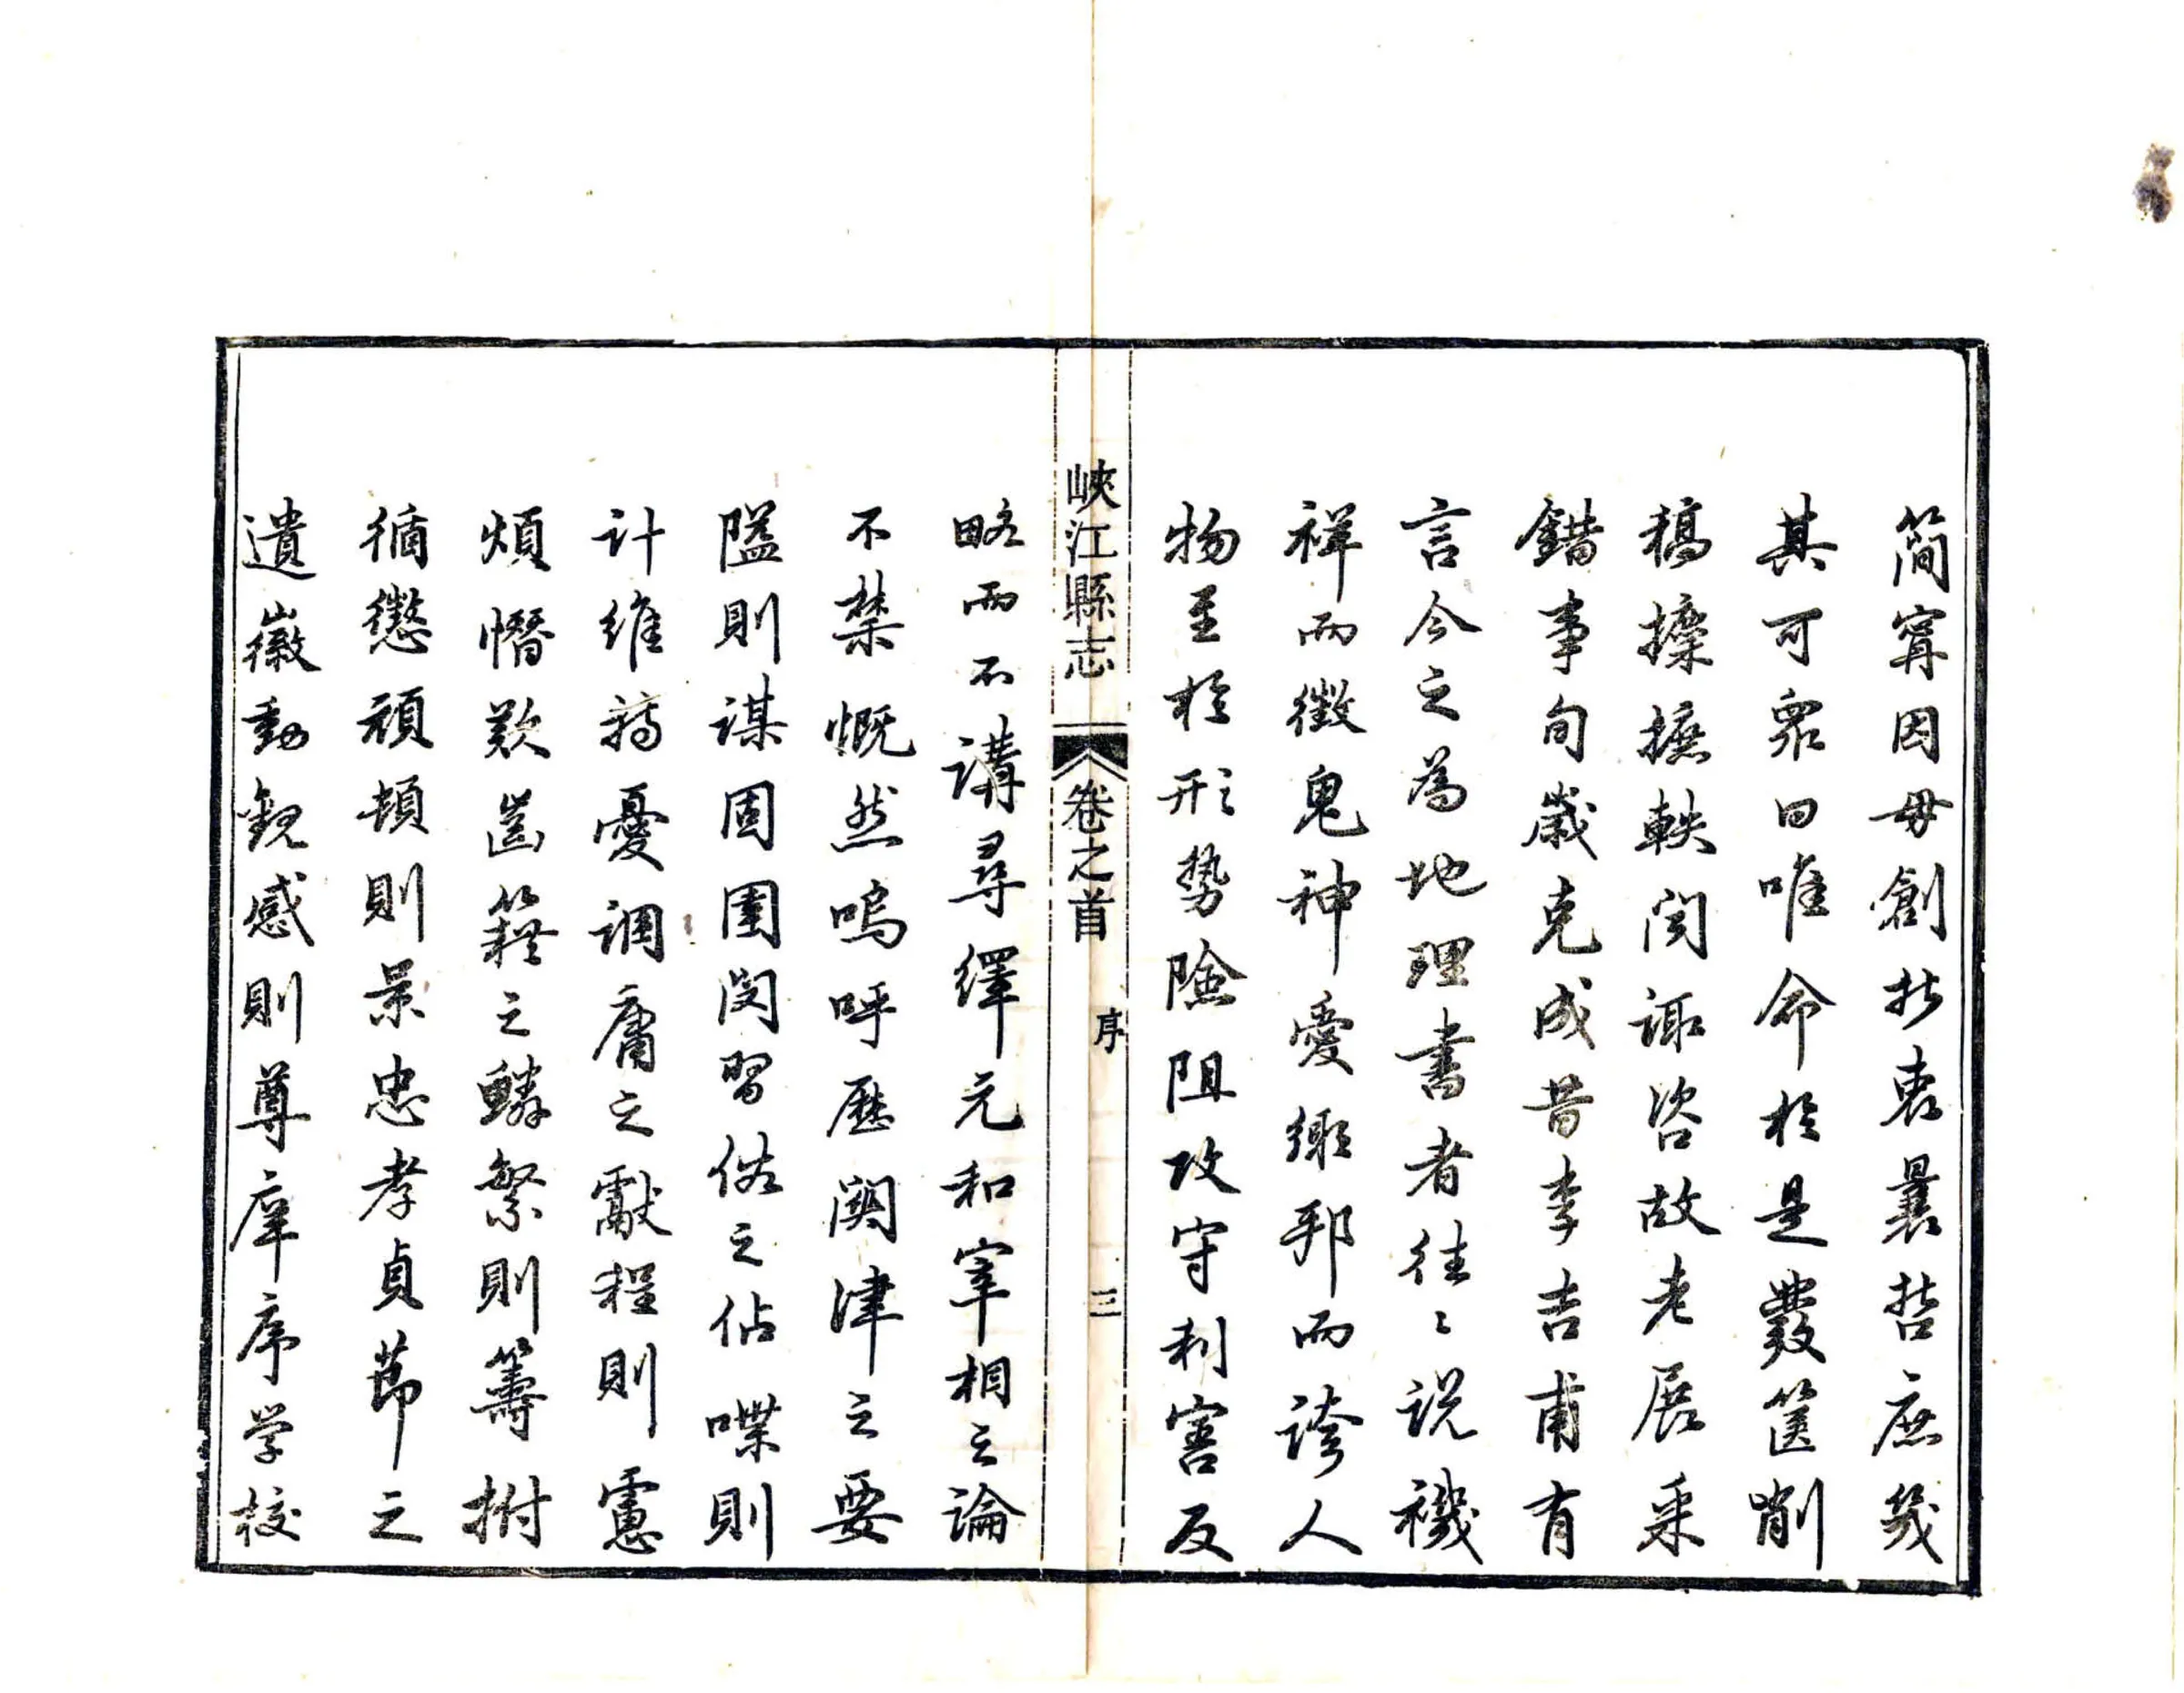 簡寗因毋創折衷曩哲庶幾
其可衆曰唯命於是發篋削
稿擥摭軼闵諏咨故老展采
錯事旬歲克成昔李吉甫有
言今之為地理書者往〻説禨
祥而徵鬼神愛鄉邦而誇人
物至於形勢險阻攻守利害反
峽江縣志
卷之首
序
三
略而不講尋繹元和宰相之論
不禁慨然嗚呼歷関津之要
隘則謀固圉閔習俗之佔喋則
計維蒍憂調庸之獻程則慮
煩懵歎畄籍之鱗繁則籌拊
循懲頑頓則景忠孝貞節之
遺徽動觀感則尊庠序学校